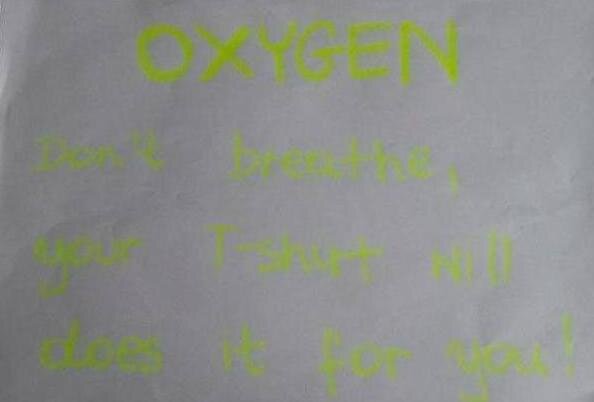 OXYGEN
Don't breathe,
your T-shirt will
does it for you!